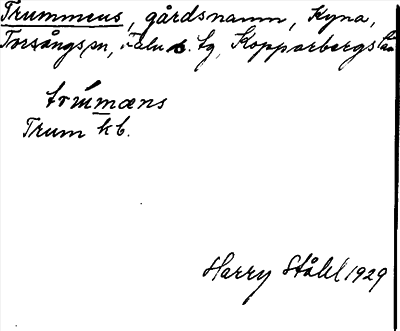 Trummens, gårdsnamn, Kyna,
Torsångs sn, Falu s. tg, Kopparbergs län
trùmmæns
Trum kb.
Harry Ståhl 1929